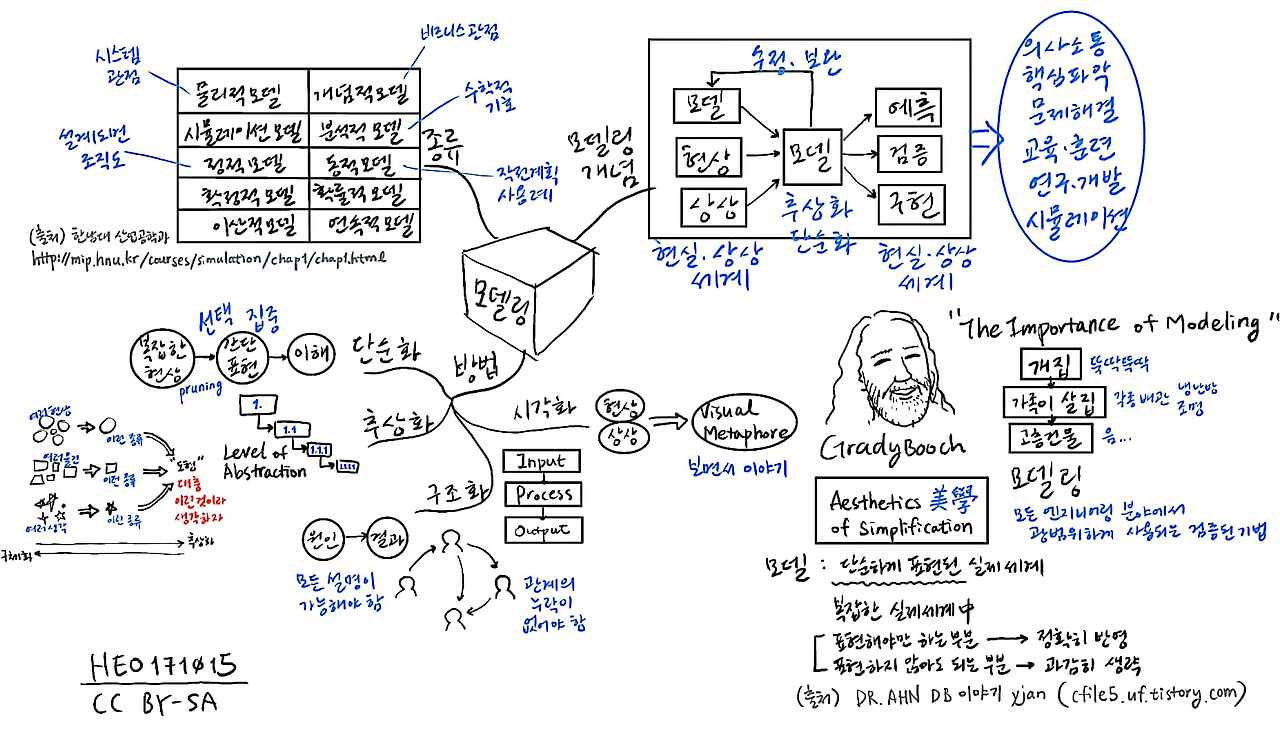 시스템
관점
비즈니스관점
물리적모델
개념적모델
시뮬레이션모델
분석적 모델
수학적
기호
설계도면
조직도
정적모델
동적모델
작전계획
사용례
확정적모델
확률적모델
이산적모델
연속적모델
종류
(출처) 한남대 산업공학과
http://mip.hnu.kr/courses/simulation/chap1/chap1.html
모델링
개념
수정·보완
모델
현상
상상
모델
추상화
단순화
예측
검증
구현
현실·상상
세계
현실·상상
세계
의사소통
핵심파악
문제해결
교육·훈련
연구·개발
시뮬레이션
모델링
방법
단순화
선택 집중
복잡한
현상
간단
표현
이해
pruning
추상화
1.
1.1
1.1.1
1.1.1.1
Level of
Abstraction
여러현상
이런 종류
여러물건
이런 종류
여러생각
이런 종류
"모형"
대충
이런것이라
생각하자
구체화
추상화
시각화
현상
상상
Visual
Metaphore
보면서 이야기
구조화
Input
Process
Output
원인
결과
모든 설명이
가능해야 함
관계의
누락이
없어야 함
Grady Booch
Aesthetics 美學
of Simplification
"The Importance of Modeling"
개집
뚝딱뚝딱
가족이 살집
각종 배관
냉난방
조명
고층건물
음...
모델링
모든 엔지니어링 분야에서
광범위하게 사용되는 검증된 기법
모델 : 단순하게 표현된 실제세계
복잡한 실제세계 中
표현해야만 하는부분 → 정확히 반영
표현하지 않아도 되는부분 → 과감히 생략
(출처) DR.AHN DB 이야기 xjan (cfile5.uf.tistory.com)
HEO171015
CC BY-SA